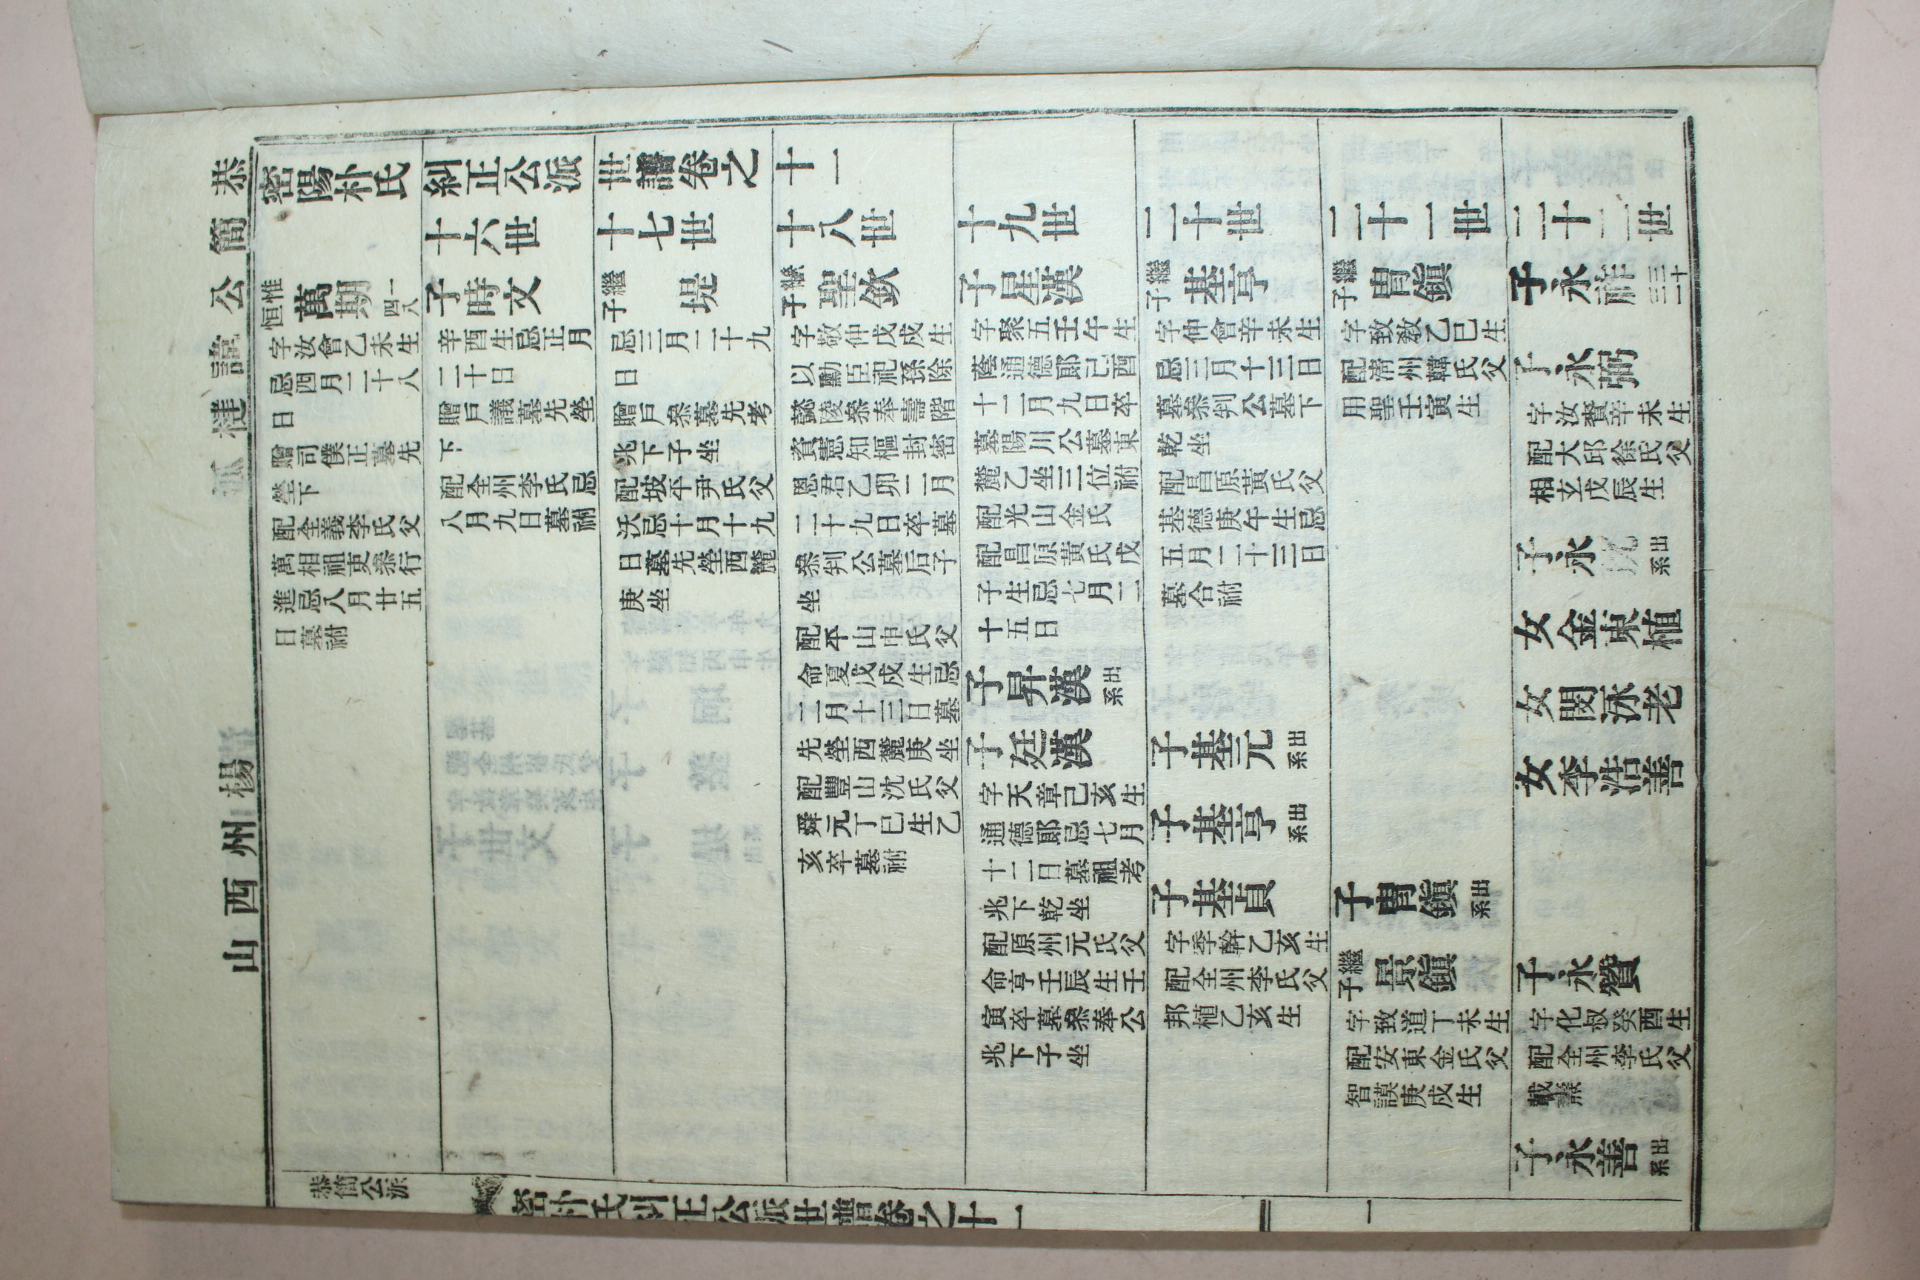 恭簡公諱
楊州西山
密陽朴氏糾正公派世譜卷之十一
十六世
十七世
十八世
十九世
二十世
二十一世
二十二世
恒惟
萬期
一八四
字汝會乙未生
忌四月二十八
日
贈司僕正墓先
塋下
配全義李氏父
萬相祖吏叅行
進忌八月廿五
日墓祔
子時文
辛酉生忌正月
二十日
贈戶議墓先塋
下
配全州李氏忌
八月九日墓祔
繼子
堤
忌三月二十九
日
贈戶叅墓先考
兆下子坐
配坡平尹氏父
沃忌十月十九
日墓先塋西麓
庚坐
繼子
聖欽
字敬仲戊戌生
以勳臣祀孫除
懿陵叅奉壽階
資憲知樞封密
恩君乙卯二月
二十九日卒墓
叅判公墓后子
坐
配平山申氏父
命夏戊戌生忌
二月十三日墓
先塋西麓庚坐
配豐山沈氏父
舜元丁巳生乙
亥卒墓祔
子星漢
字聚五壬午生
蔭通德郞己酉
十二月九日卒
墓陽川公墓東
麓乙坐三位祔
配光山金氏
配昌原黃氏戊
子生忌七月二
十五日
子昇漢
出系
子廷漢
字天章己亥生
通德郞忌七月
十二日墓祖考
兆下乾坐
配原州元氏父
命亨壬辰生壬
寅卒墓叅奉公
兆下子坐
繼子
基亨
字仲會辛未生
忌三月十三日
墓叅判公墓下
乾坐
配昌原黃氏父
基德庚午生忌
五月二十三日
墓合祔
子基元
出系
子基亨
出系
子基貞
字季幹乙亥生
配全州李氏父
邦植乙亥生
繼子
胄鎭
字致敎乙巳生
配淸州韓氏父
用聖壬寅生
子胄鎭
出系
繼子
景鎭
字致道丁未生
配安東金氏父
智謨庚戌生
子永祚
子永弼
字汝賚辛未生
配大邱徐氏父
相玄戊辰生
子永
出系
女金東植
女閔泳老
女李浩善
子永贊
字化叔癸酉生
配全州李氏父
載
子永善
出系
恭簡公派
密朴氏糾正公派世譜卷之十一
一